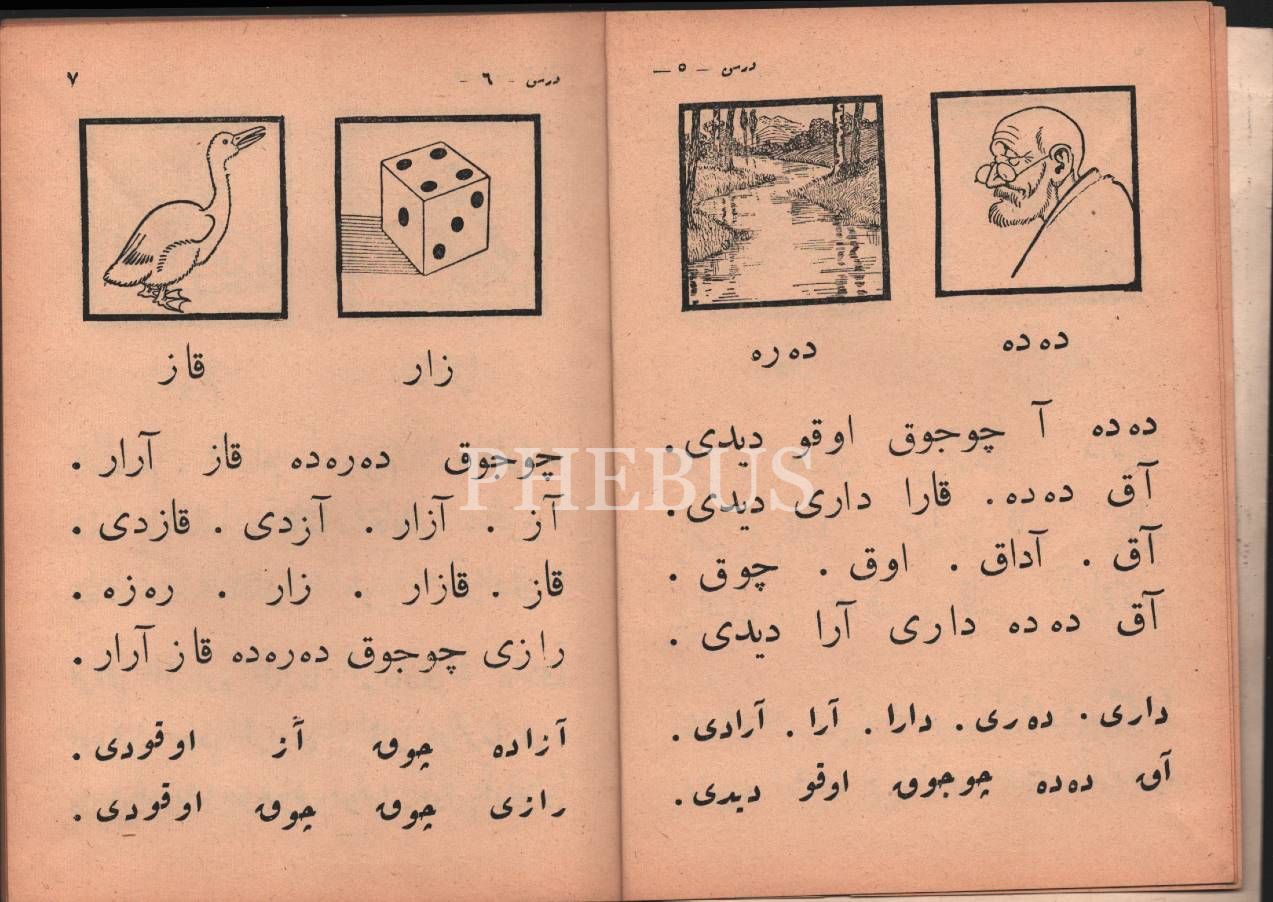 درس - ٥ -
دەدە
دەرە
دەدە آ چوجوق اوقو دیدی.
آق دەدە. قارا داری دیدی.
آق . آداق . اوق . چوق .
آق دەدە داری آرا دیدی .
داری . دەری . دارا . آرا . آرادی .
آق دەدە چوجوق اوقو دیدی .
درس - ٦ -
٧
زار
قاز
چوجوق دەرەدە قاز آرار .
آز . آزار . آزدی . قازدی .
قاز . قازار . زار . رەزە .
رازی چوجوق دەرەدە قاز آرار .
آزادە چوق آز اوقودی .
رازی چوق چوق اوقودی .
PHEBUS